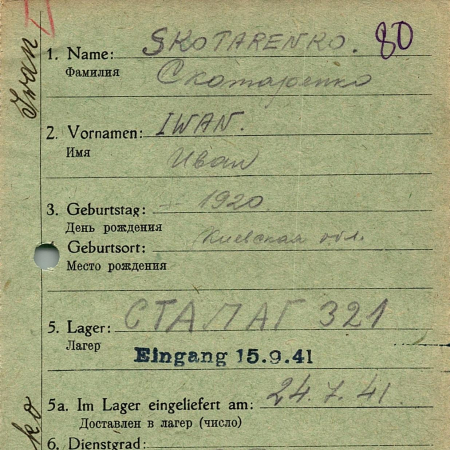 1. Name: SKOTARENKO. 80
Фамилия Скотаренко
2. Vornamen: IWAN.
Имя Иван
3. Geburtstag: 1920
День рождения
Geburtsort: Киевская обл.
Место рождения
5. Lager: СТАЛАГ 321
Лагер
Eingang 15.9.41
5a. Im Lager eingeliefert am: 24.7.41.
Доставлен в лагер (число)
6. Dienstgrad:
Iwan
ko